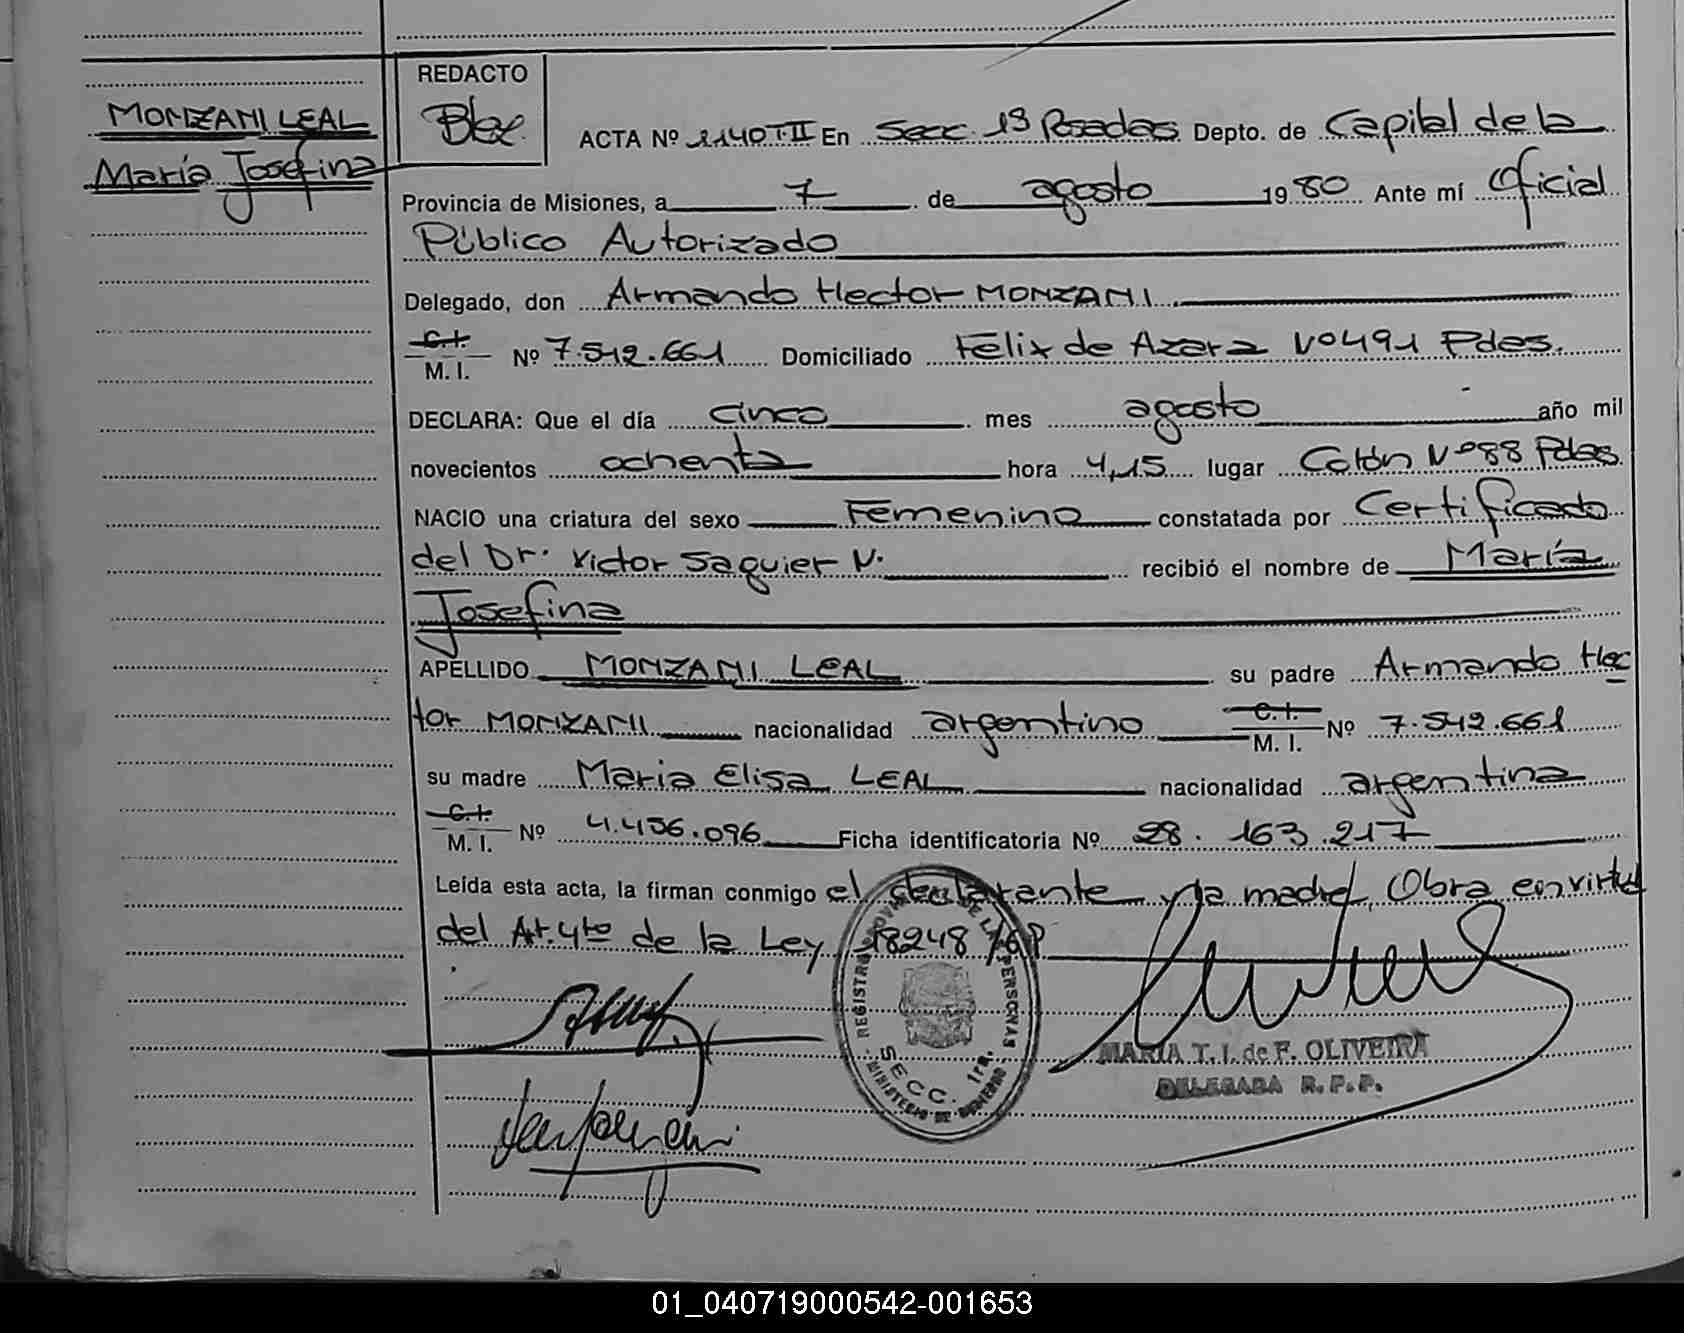 MONZANI LEAL
María Josefina
REDACTO
ACTA Nº 1140 T II En Secc. 1ª Posadas Depto. de Capital de la
Provincia de Misiones, a 7 de agosto 1980 Ante mí Oficial
Público Autorizado
Delegado, don Armando Hector MONZANI
C.I. M. I. Nº 7.542.661 Domiciliado Felix de Azara Nº 491 Pdas.
DECLARA: Que el día cinco mes agosto año mil
novecientos ochenta hora 4,15 lugar Colón Nº 88 Pdas.
NACIO una criatura del sexo Femenino constatada por Certificado
del Dr. Victor Saguier N. recibió el nombre de María
Josefina
APELLIDO MONZANI LEAL su padre Armando Hec
tor MONZANI nacionalidad argentino C.I. M. I. Nº 7.542.661
su madre Maria Elisa LEAL nacionalidad argentina
C.I. M. I. Nº 4.456.096 Ficha identificatoria Nº 28.163.217
Leída esta acta, la firman conmigo el declarante y la madre, Obra en virtud
del Art. 4to de la Ley 18248
REGISTRO PROVINCIAL DE LAS PERSONAS
SECC. 1ra.
MINISTERIO DE GOBIERNO
MARIA T. I. de F. OLIVEIRA
DELEGADA R. P. P.
01_040719000542-001653